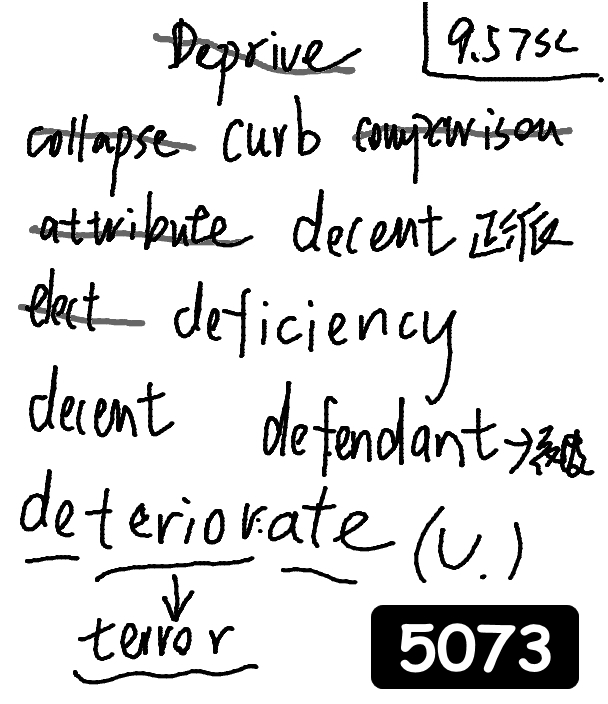 Deprive 9.57SC
collapse curb comparison
attribute decent 正派
elect deficiency
decent defendant →
deteriorate (v.)
↓
terror
5073